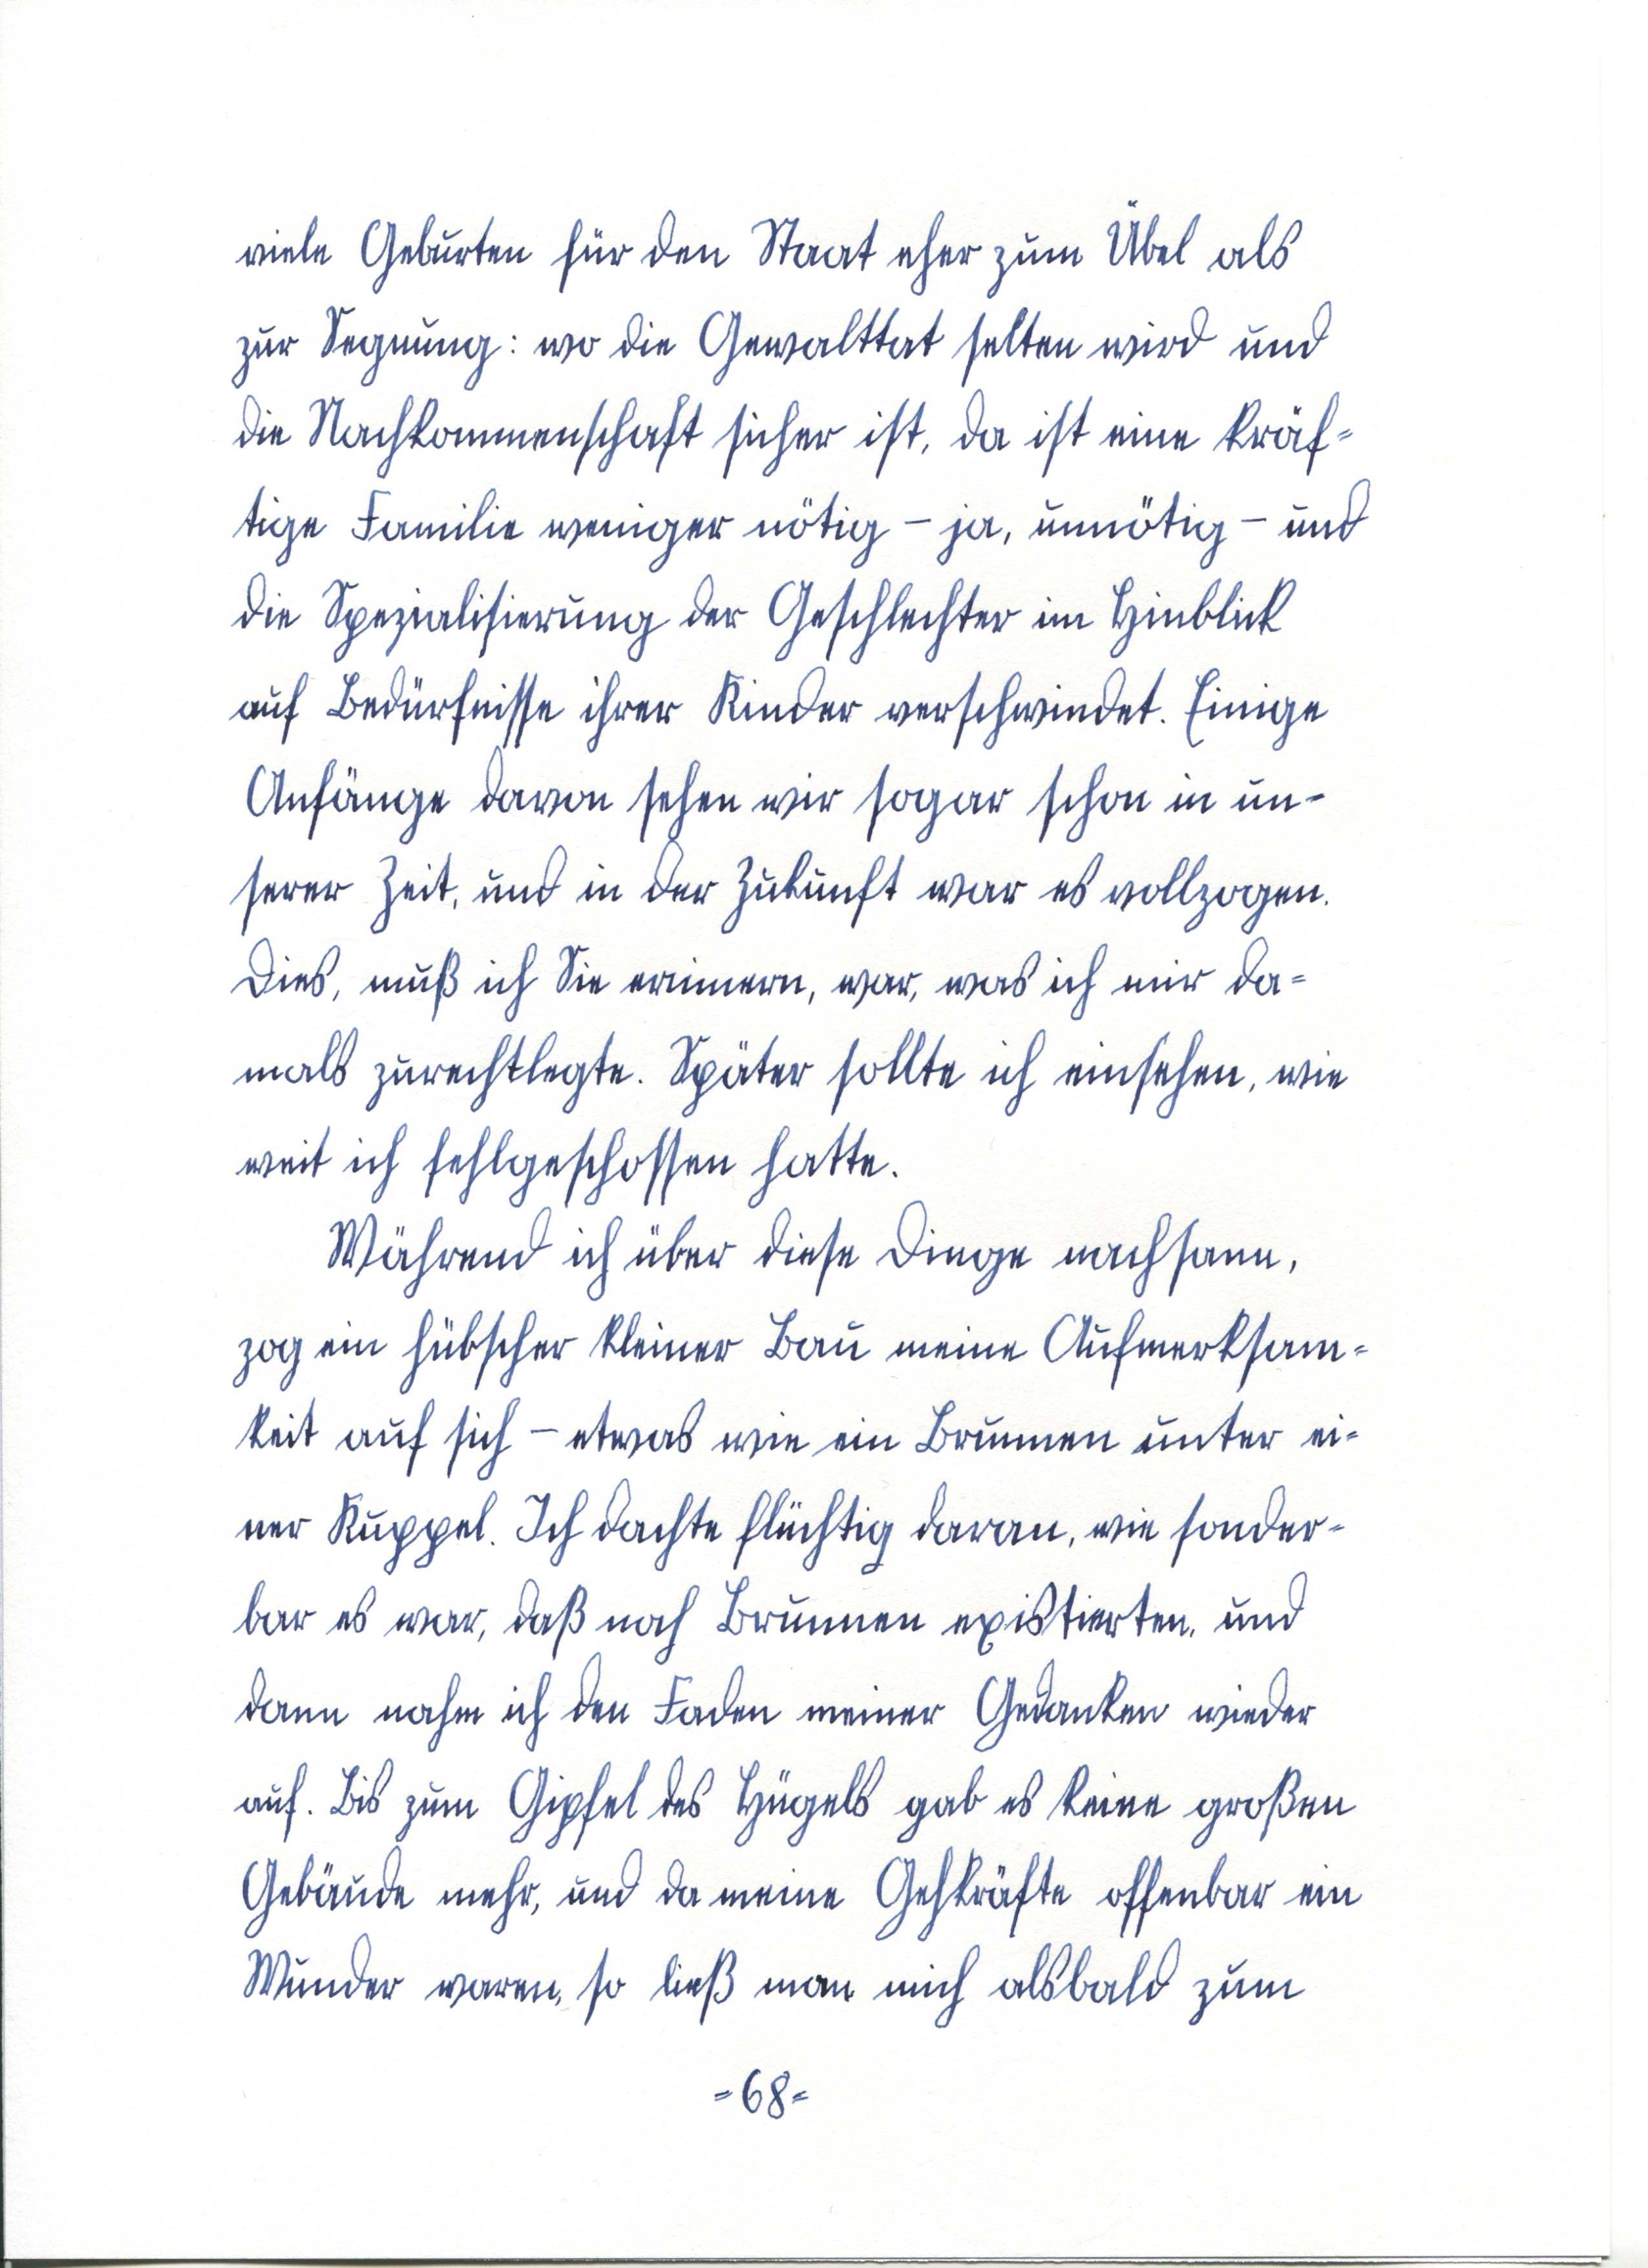 viele Geburten für den Staat eher zum Übel als
zur Segnung: wo die Gewalttat selten wird und
die Nachkommenschaft sicher ist, da ist eine kräf=
tige Familie weniger nötig – ja, unnötig – und
die Spezialisierung der Geschlechter im Hinblick
auf Bedürfnisse ihrer Kinder verschwindet. Einige
Anfänge davon sehen wir sogar schon in un=
serer Zeit, und in der Zukunft war es vollzogen.
Dies, muß ich Sie erinnern, war, was ich mir da=
mals zurechtlegte. Später sollte ich einsehen, wie
weit ich fehlgeschossen hatte.
Während ich über diese Dinge nachsann,
zog ein hübscher kleiner Bau meine Aufmerksam=
keit auf sich – etwas wie ein Brunnen unter ei=
ner Kuppel. Ich dachte flüchtig daran, wie sonder=
bar es war, daß noch Brunnen existierten, und
dann nahm ich den Faden meiner Gedanken wieder
auf. Bis zum Gipfel des Hügels gab es keine großen
Gebäude mehr, und da meine Gehkräfte offenbar ein
Wunder waren, so ließ man mich alsbald zum
=68=